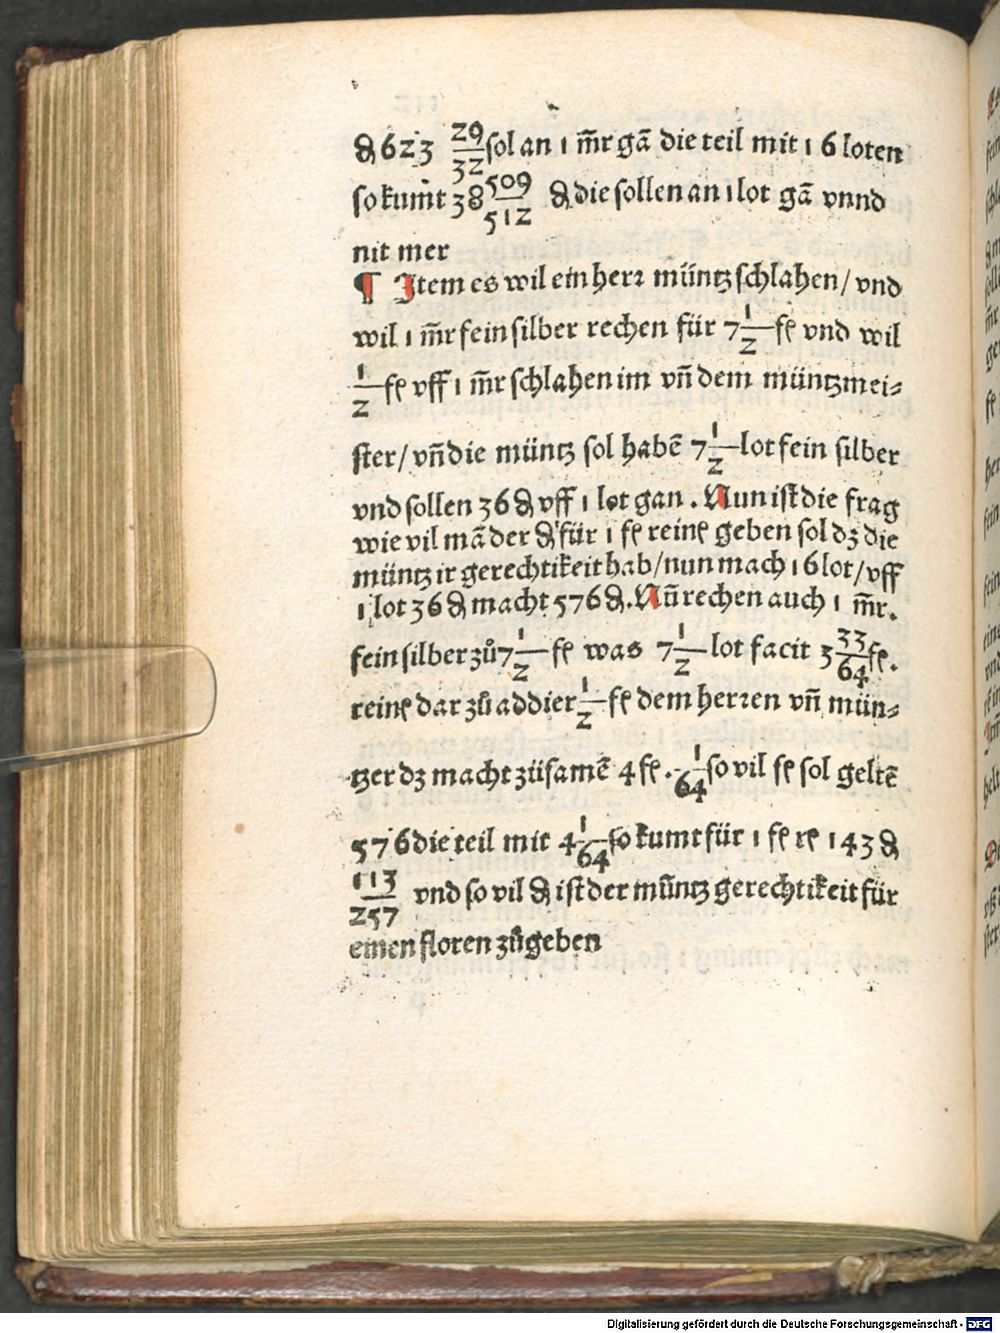 ₰ 623 29/32 sol an 1 m̃r gā die teil mit 16 loten
so kumt 38 509/512 ₰ die sollen an 1 lot gā vnnd
nit mer
¶ Item es wil ein herꝛ müntz schlahen/ vnd
wil 1 m̃r fein silber rechen für 7 1/2 fl̃ vnd wil
1/2 fl̃ vff 1 m̃r schlahen im vn̄ dem müntzmei⸗
ster/ vn̄ die müntz sol habē 7 1/2 lot fein silber
vnd sollen 36 ₰ vff 1 lot gan. Nun ist die frag
wie vil mā der ₰ für 1 fl̃ reinꝭ geben sol dz die
müntz ir gerechtikeit hab/ nun mach 16 lot/ vff
1 lot 36 ₰ macht 576 ₰. Nū rechen auch 1 m̃r.
fein silber zů 7 1/2 fl̃ was 7 1/2 lot facit 3 33/64 fl̃.
reinꝭ dar zů addier 1/2 fl̃ dem herꝛen vn̄ mün⸗
tzer dz macht züsamē 4 fl̃. 1/64 so vil fl̃ sol geltē
576 die teil mit 4 1/64 so kumt für 1 fl̃ rꝭ 143 ₰
113/257 vnd so vil ₰ ist der mūntz gerechtikeit für
einen floren zůgeben
Digitalisierung gefördert durch die Deutsche Forschungsgemeinschaft - DFG